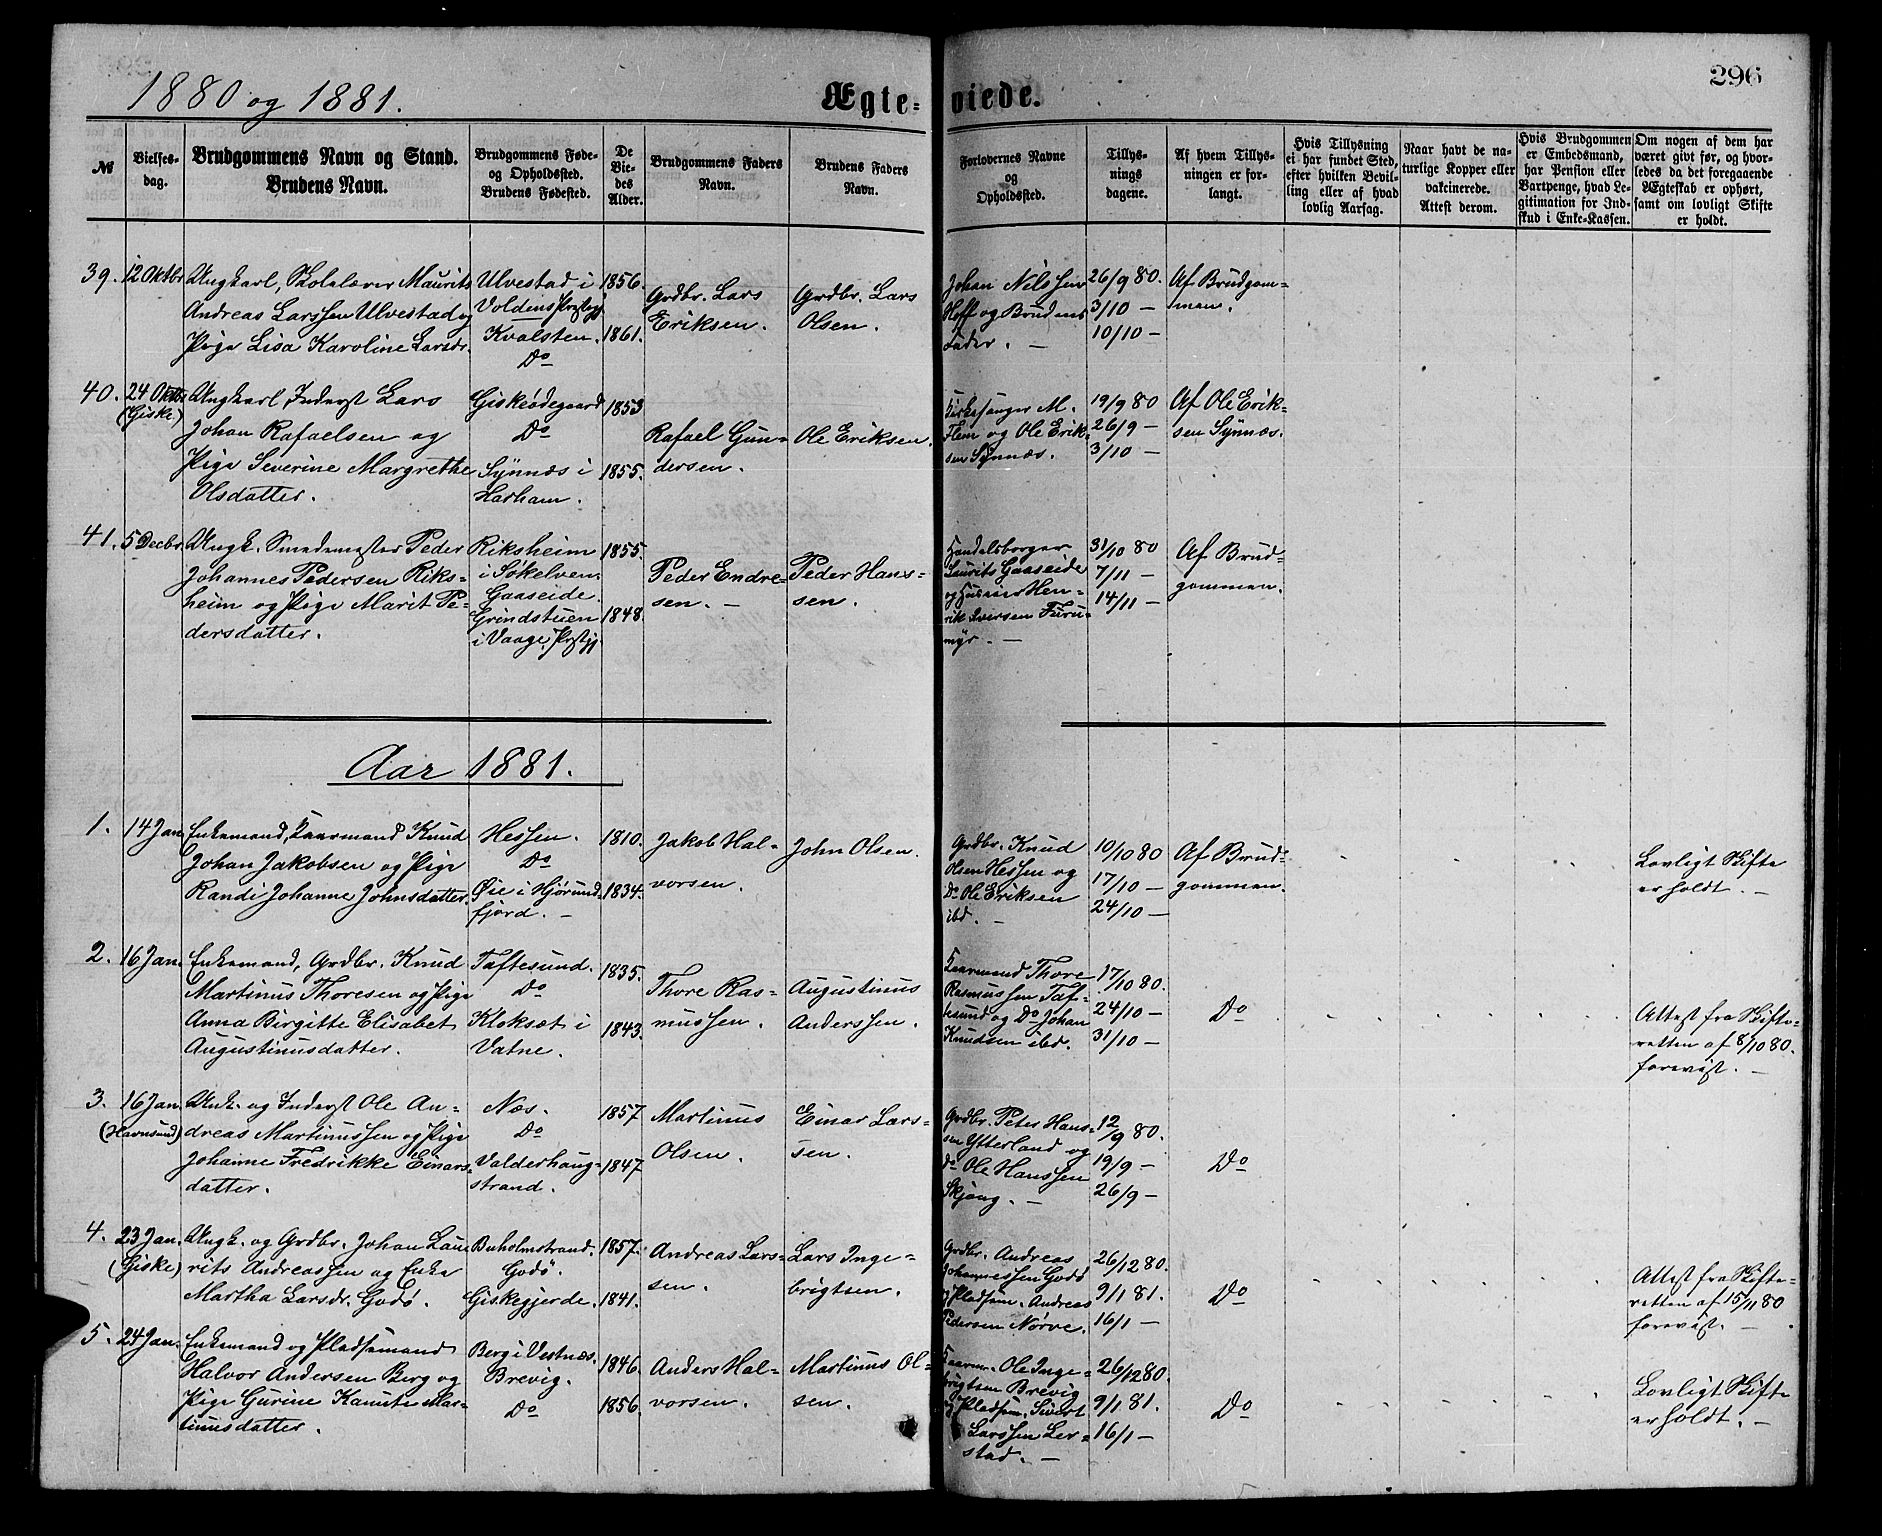 296
1880 og 1881.
Ægteviede.
№
Vielsesdag.
Brudgommens Navn og Stand.
Brudens Navn.
Brudgommens Føde-
og Opholdssted.
Brudens Fødested.
De
Vie-
des
Alder.
Brudgommens Faders
Navn.
Brudens Faders
Navn.
Forlovernes Navne
og
Opholdssted.
Tillys-
nings
dagene.
Af hvem Tillys-
ningen er for-
langt.
Hvis Tillysning
ei har fundet Sted,
efter hvilken Bevil-
ling eller af hvad
lovlig Aarsag.
Naar havt de na-
turlige Kopper eller
vakcinerede.
Attest derom.
Hvis Brudgommen
er Embedsmand,
har Pension eller
Vartpenge, hvad Le-
gitimation for Ind-
skud i Enke-Kassen.
Om nogen af dem har
været gift før, og hvor-
ledes da det foregaaende
Ægteskab er ophørt,
samt om lovligt Skifte
er holdt.
39.
12 Oktbr
Ungkarl, Skolelærer Maurits
Andreas Larssen Ulvestad og
Pige Lisa Karoline Larsdr.
Ulvestad i
Voldens Prstgj.
Kvalsten.
Do
1856.
1861.
Grdbr. Lars
Eriksen.
Grdbr. Lars
Olsen.
Johan Nilssen
Hoff og Brudens
Fader. —
26/9 80.
3/10 —
10/10 —
Af Brudgom-
men.
40.
24 Oktb
(Giske)
Ungkarl, Inderst Lars
Johan Rafaelsen og
Pige Severine Margrethe
Olsdatter.
Giskeødegaard
Do
Synnæs i
Harham.
1853
1855.
Rafael Gun-
dersen.
Ole Eriksen.
Kirkesanger M.
Flem og Ole Erik-
sen Synnæs.
19/9 80
26/9 —
3/10 —
Af Ole Erik-
sen Synnæs.
41.
5 Decbr.
Ungk. Smedemester Peder
Johannes Pedersen Riks-
heim og Pige Marit Pe-
dersdatter.
Riksheim
i Søkelven.
Gaaseide.
Grindstuen
i Vaage Prstgj.
1855.
1848.
Peder Endre-
sen. —
Peder Hans-
sen.
Handelsborger
Laurits Gaaseide
og Husmr Hen-
rik Iversen Furu-
myr. —
31/10 80
7/11 —
14/11 —
Af Brud-
gommen.
Aar 1881.
1.
14 Jan
Enkemand, Kaarmand Knud
Johan Jakobsen og Pige
Randi Johanne Johnsdatter.
Hessen.
Do
Øie i Hjørund-
fjord. —
1810.
1834.
Jakob Hal-
vorsen.
John Olsen.
Grdbr. Knud
Olsen Hessen og
Do Ole Eriksen
ibd. —
10/10 80
17/10 —
24/10 —
Af Brud-
gommen.
Lovligt Skifte
er holdt. —
2.
16 Jan.
Enkemand, Grdbr. Knud
Martinus Thoresen og Pige
Anna Birgitte Elisabet
Augustinusdatter.
Taftesund.
Do
Kloksæt i
Vatne.
1835.
1843.
Thore Ras-
mussen.
Augustinus
Anderssen.
Kaarmand Thore
Rasmussen Taf-
tesund og Do Johan
Knudsen ibd.
17/10 80.
24/10 —
31/10 —
Do
Attest fra Skifte-
retten af 8/10 80.
forevist. —
3.
16 Jan.
(Havnsund)
Unk. og Inderst Ole An-
dreas Martinussen og Pige
Johanne Fredrikke Einars-
datter.
Næs.
Do
Valderhaug-
strand.
1857
1847
Martinus
Olsen.
Einar Lars-
sen.
Grdbr. Peter Hans-
sen Ytterland og
Do Ole Hanssen
Skjong. —
12/9 80.
19/9 —
26/9 —
Do
4.
23 Jan.
(Giske)
Ungk. og Grdbr. Johan Lau-
rits Andreassen og Enke
Martha Larsdr. Godø.
Buholmstrand.
Godø.
Giskegjerde.
1857.
1841.
Andreas Lars-
sen.
Lars Inge-
brigtsen.
Grdbr. Andreas
Johannessen Godø
og Pladsm. Andreas
Pedersen Nørve.
26/12 80.
9/1 81.
16/1 —
Do
Attest fra Skifte-
retten af 15/11 80
forevist. —
5.
24 Jan.
Enkemand og Pladsemand
Halvor Andersen Berg og
Pige Gurine Kanute Mar-
tinusdatter.
Berg i Vestnæs.
Brevig.
Do
1846.
1856.
Anders Hal-
vorsen.
Martinus Ol-
sen.
Kaarm. Ole Inge-
brigtsen Brevig
og Pladsm. Sivert
Larssen Ler-
stad. —
26/12 80.
9/1 81.
16/1 —
Do
Lovligt Skifte
er holdt. —